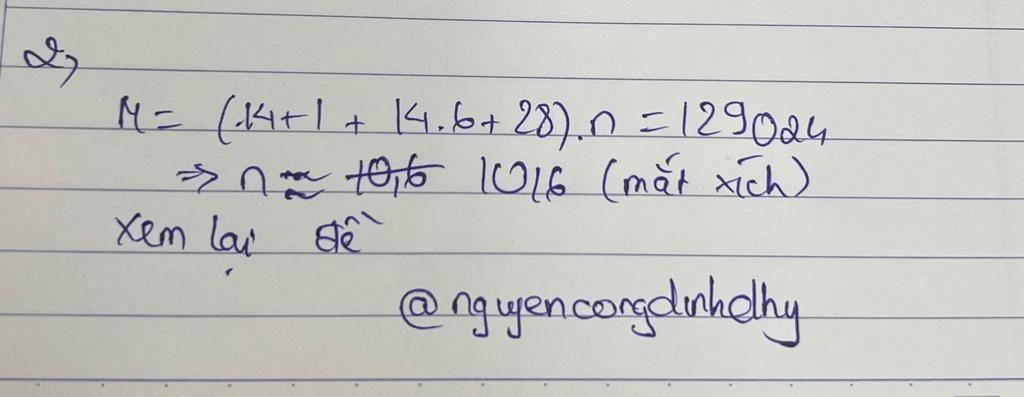 2,
M = (14+1 + 14.6+ 28).n = 129024
⇒ n ≈ 1016 (mắt xích)
Xem lại đề
@nguyencongdinhdhy